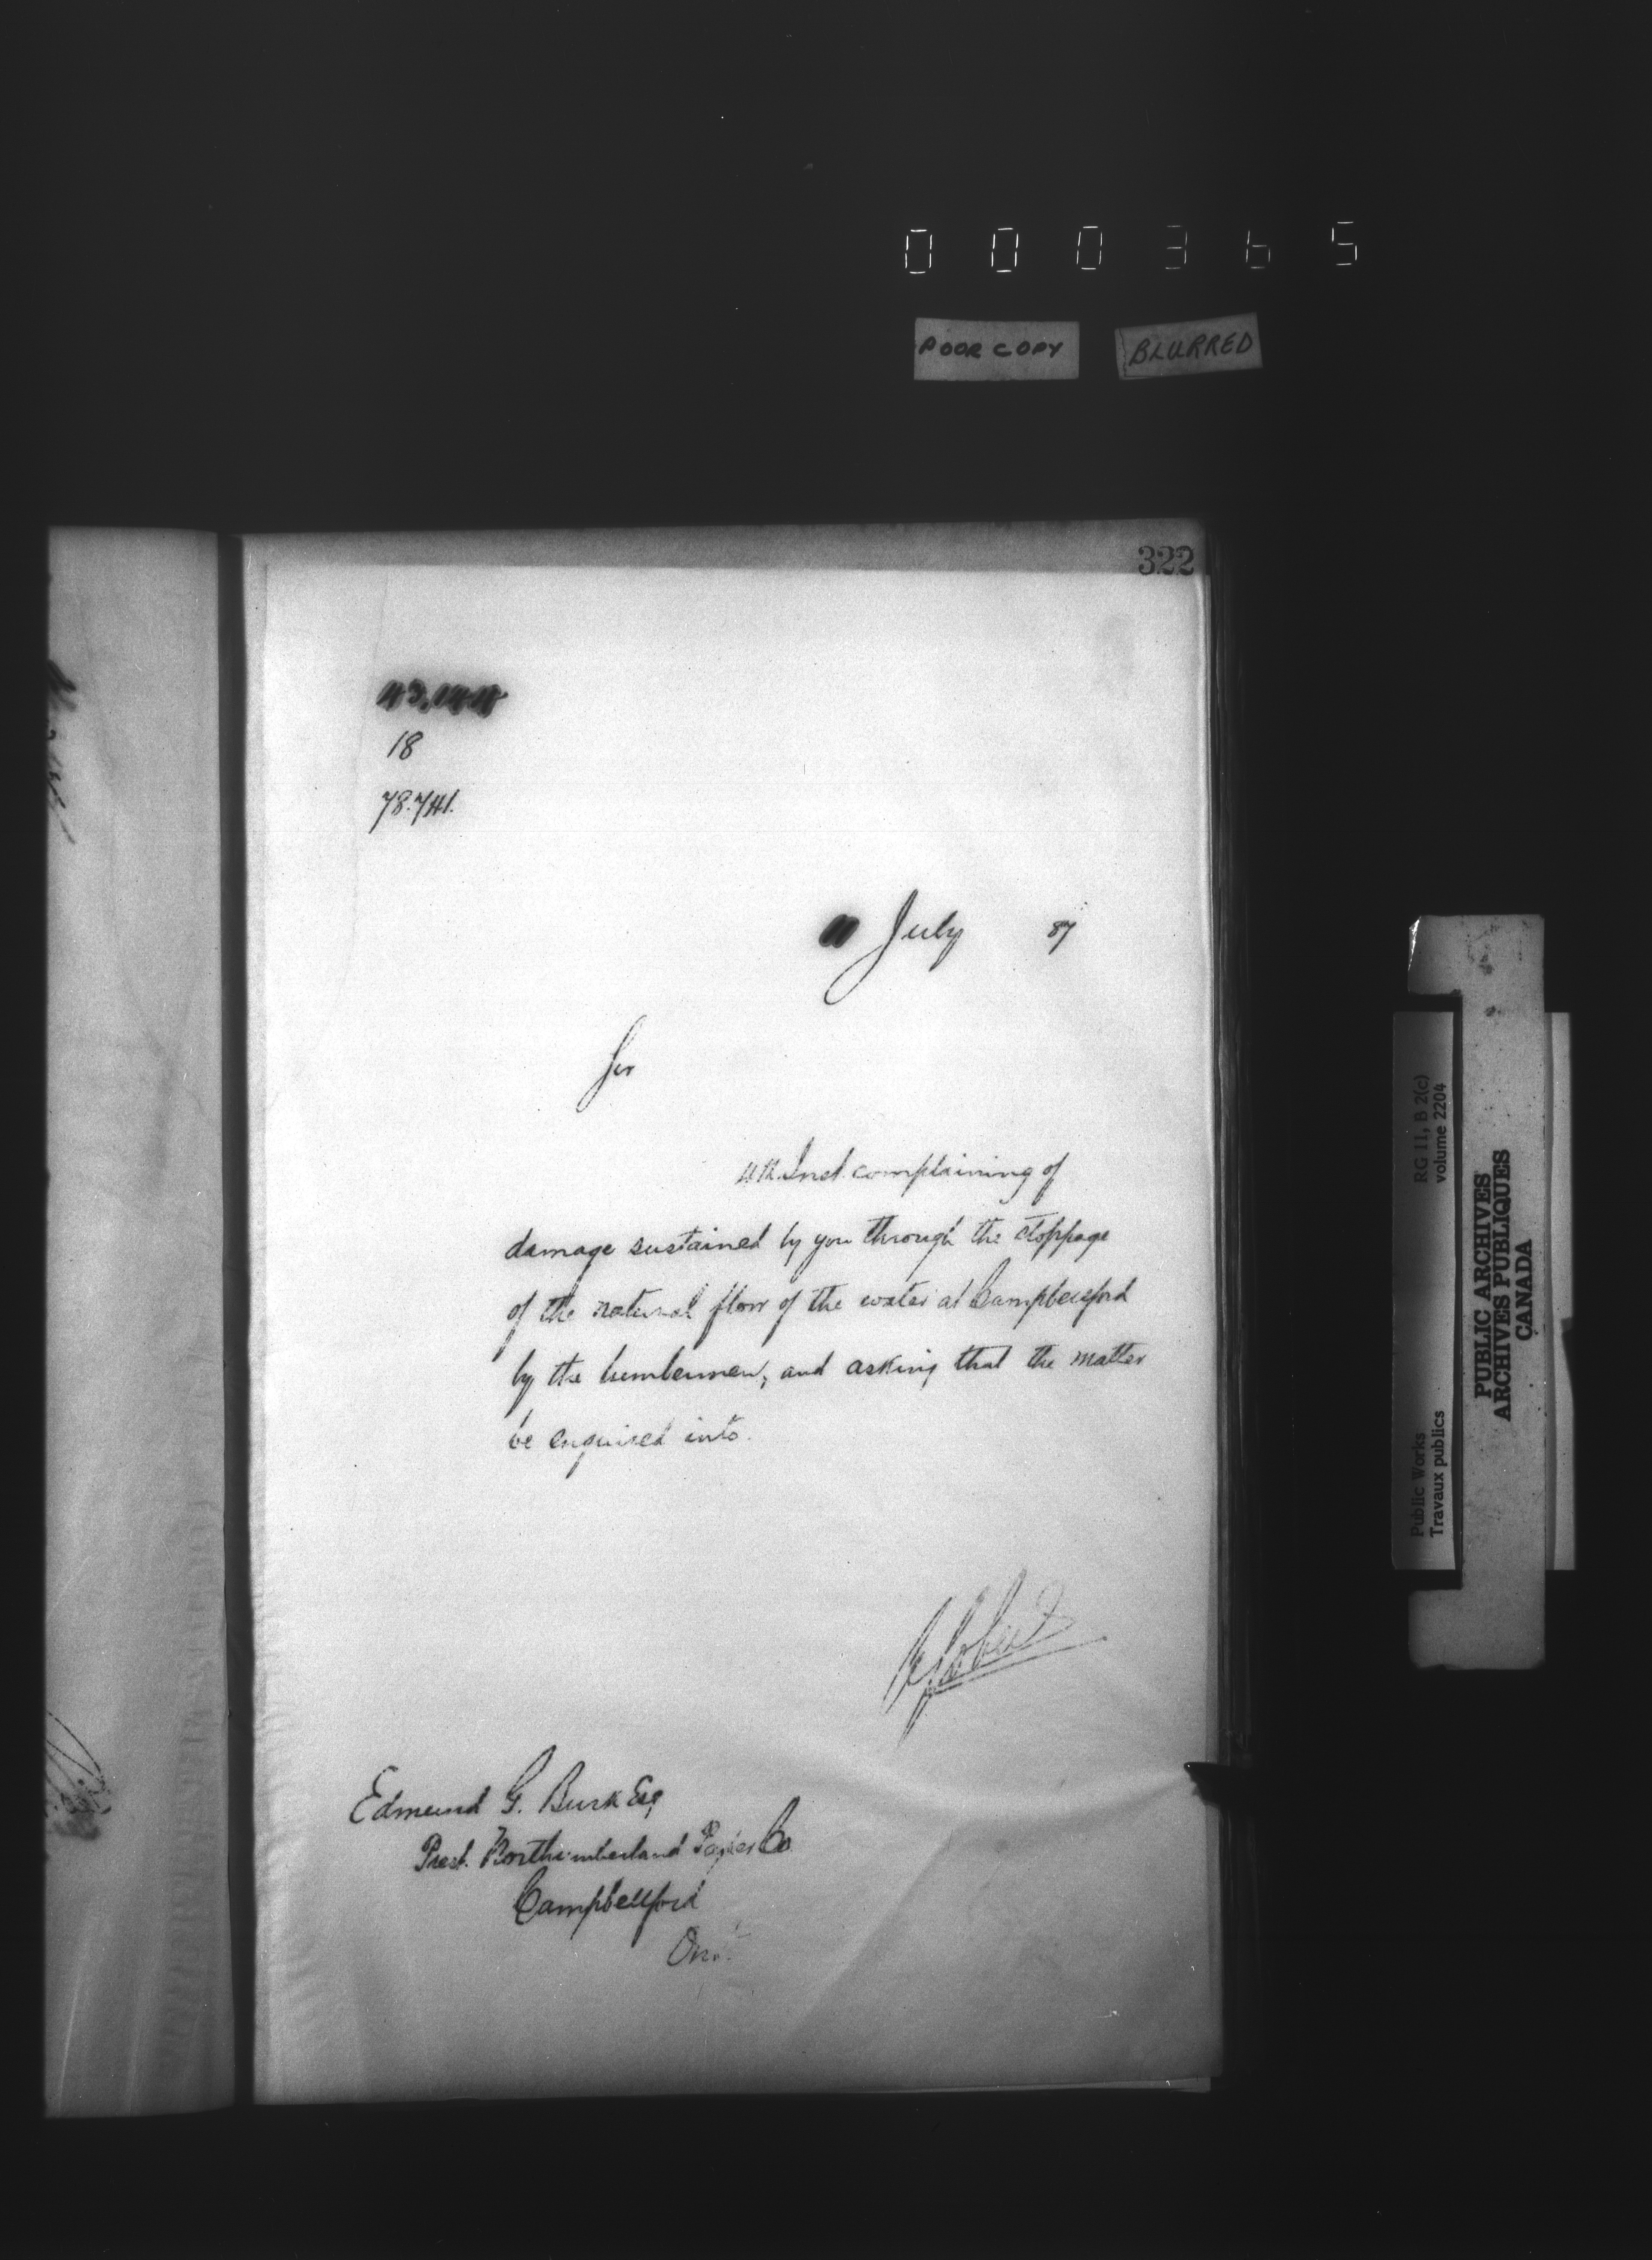 000365
POOR COPY BLURRED
322
18
78.741.
11 July 87
Sir
4th Inst. complaining of
damage sustained by you through the stoppage
of the natural flow of the water at Campbellford
by the lumbermen, and asking that the matter
be enquired into.
Edmund G. Burk Esq
Prest. Northumberland Paper Co.
Campbellford
Ont.
RG 11, B 2(c)
volume 2204
Public Works
Travaux publics
PUBLIC ARCHIVES
ARCHIVES PUBLIQUES
CANADA